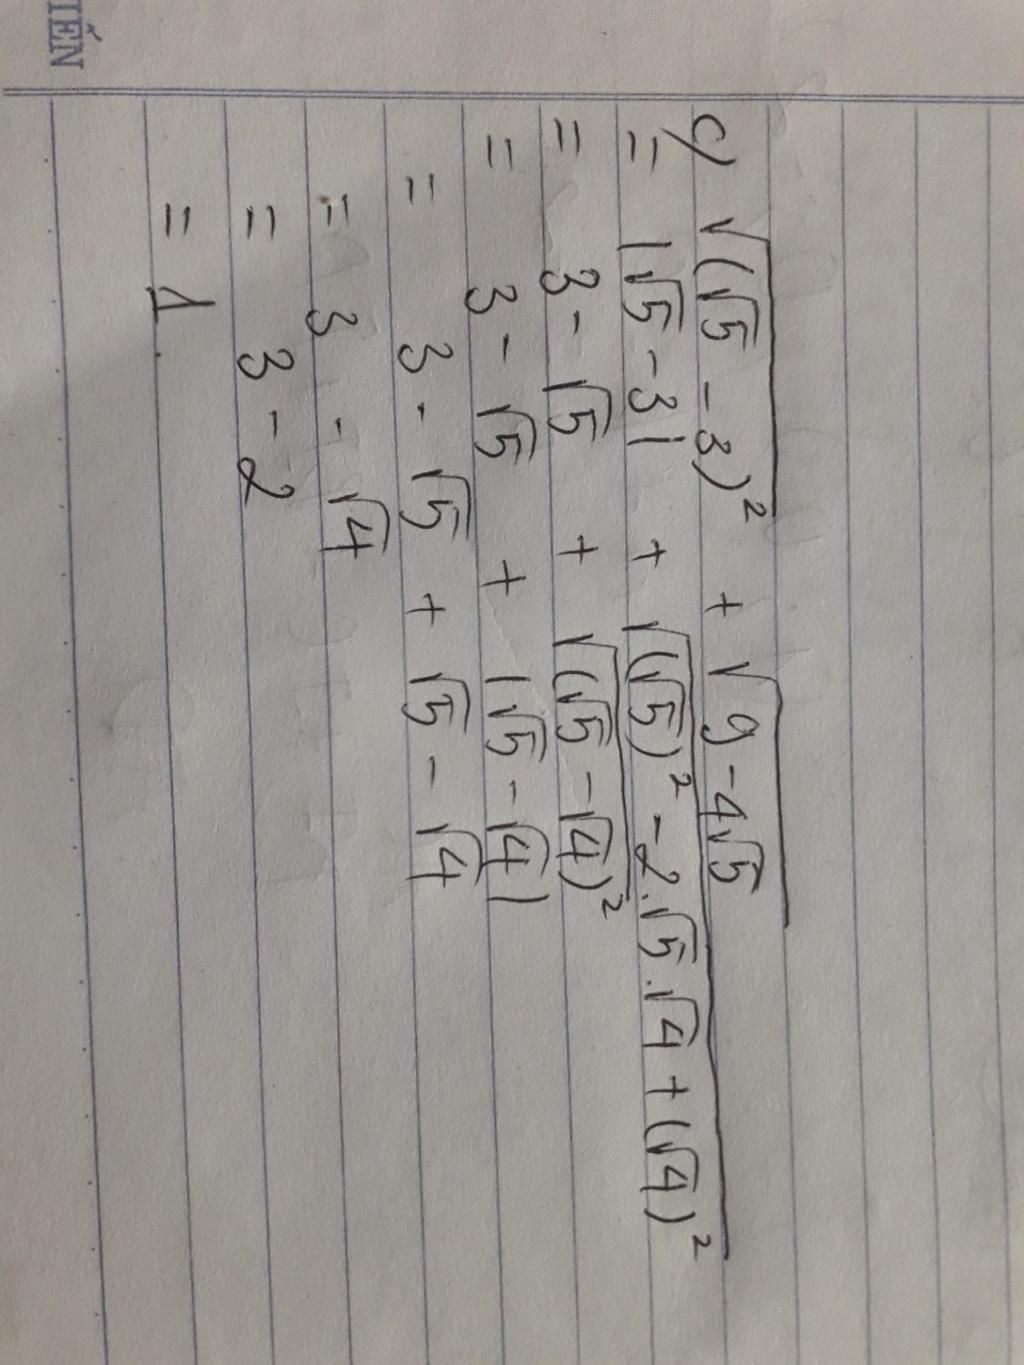 IẾN
c) √((√5 - 3)²) + √(9 - 4√5)
= |√5 - 3| + √((√5)² - 2.√5.√4 + (√4)²)
= 3 - √5 + √((√5 - √4)²)
= 3 - √5 + |√5 - √4|
= 3 - √5 + √5 - √4
= 3 - √4
= 3 - 2
= 1.